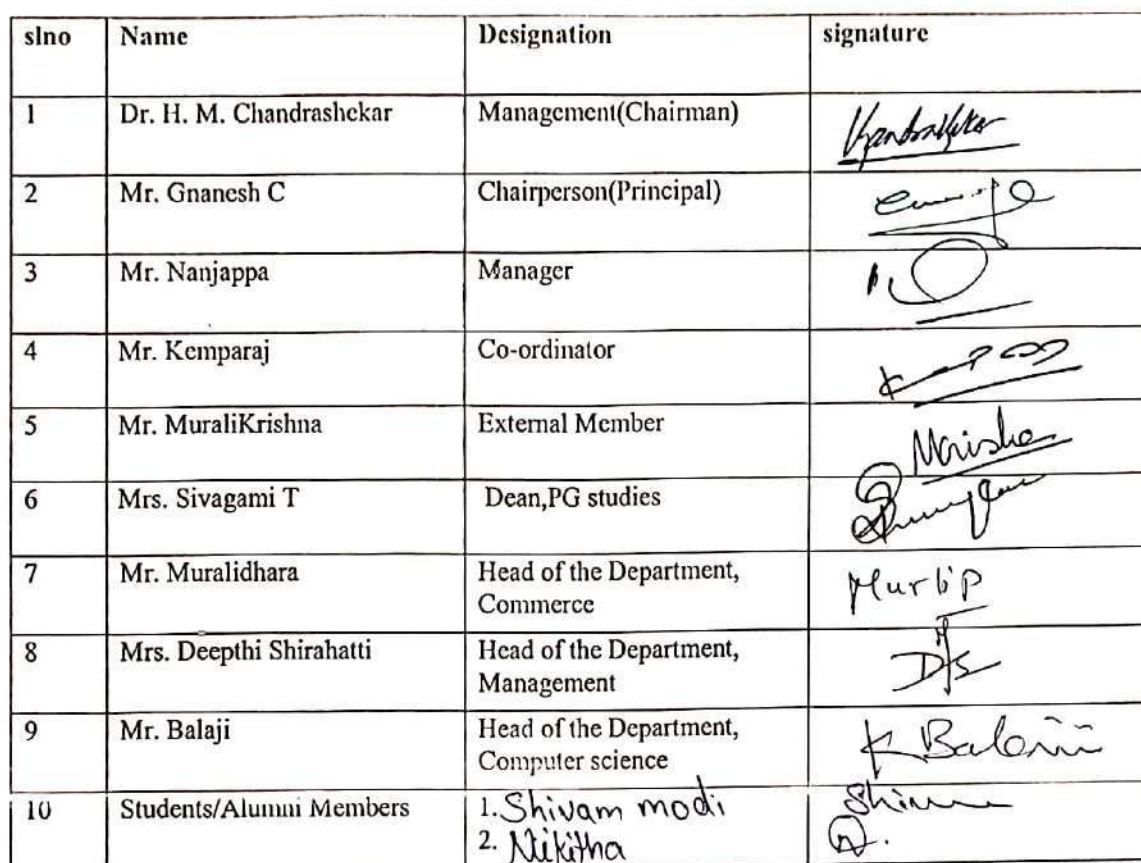 slno Name Designation signature
1 Dr. H. M. Chandrashekar Management(Chairman)
2 Mr. Gnanesh C Chairperson(Principal)
3 Mr. Nanjappa Manager
4 Mr. Kemparaj Co-ordinator
5 Mr. MuraliKrishna External Member
6 Mrs. Sivagami T Dean,PG studies
7 Mr. Muralidhara Head of the Department, Murlip
Commerce
8 Mrs. Deepthi Shirahatti Head of the Department,
Management
9 Mr. Balaji Head of the Department,
Computer science
10 Students/Alumni Members 1. Shivam modi
2. Nikitha